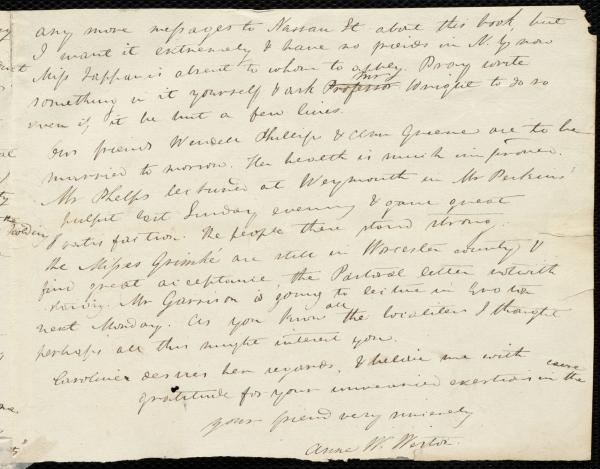 any more messages to Nassau St about this book, but
I want it extremely & have no friends in N. Y. now
Miss Tappan is absent to whom to apply. Pray write
something in it yourself & ask Professor Mr Wright to do so
even if it be but a few lines.
Our friends Wendell Phillips & Ann Greene are to be
married to morrow. Her health is much improved.
Mr Phelps lectured at Weymouth in Mr Perkins'
pulpit last Sunday evening & gave great
satisfaction. The people there stand strong.
The Misses Grimké are still in Worcester county &
find great acceptance, the Pastoral letter notwith
standing. Mr Garrison is going to lecture in
next Monday. As you know all the localities I thought
perhaps all this might interest you.
Caroline desires her regards, & believe me with
gratitude for your unwearied exertions in the cause
your friend very sincerely
Anne W. Weston.